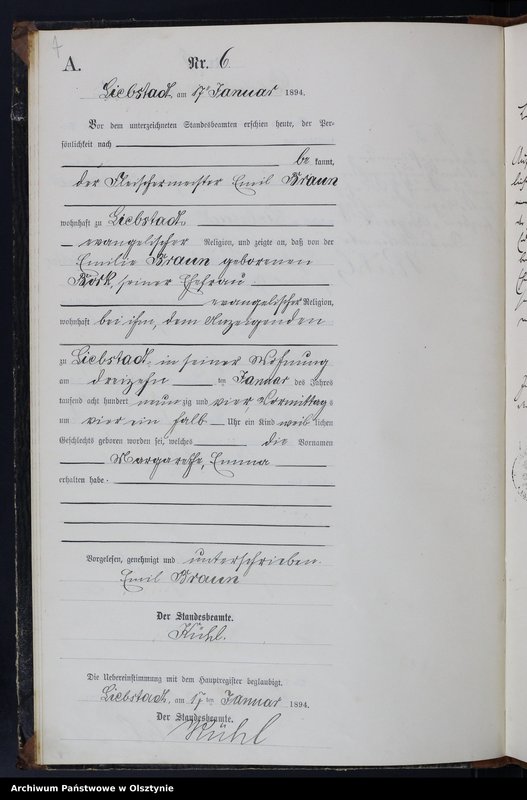 A.
Nr. 6.
Liebstadt am 17 Januar 1894.
Vor dem unterzeichneten Standesbeamten erschien heute, der Per-
sönlichkeit nach
be kannt,
der Fleischermeister Emil Braun
wohnhaft zu Liebstadt,
evangelischer Religion, und zeigte an, daß von der
Emilie Braun geborenen
Bork, seiner Ehefrau
evangelischer Religion,
wohnhaft bei ihm, dem Anzeigenden
zu Liebstadt, in seiner Wohnung
am dreizehn ten Januar des Jahres
tausend acht hundert neun zig und vier, Vormittags
um vier ein halb Uhr ein Kind weib lichen
Geschlechts geboren worden sei, welches die Vornamen
Margarethe, Emma
erhalten habe.
Vorgelesen, genehmigt und unterschrieben.
Emil Braun
Der Standesbeamte.
Kühl.
Die Uebereinstimmung mit dem Hauptregister beglaubigt.
Liebstadt, am 17 ten Januar 1894.
Der Standesbeamte.
Kühl
Archiwum Państwowe w Olsztynie